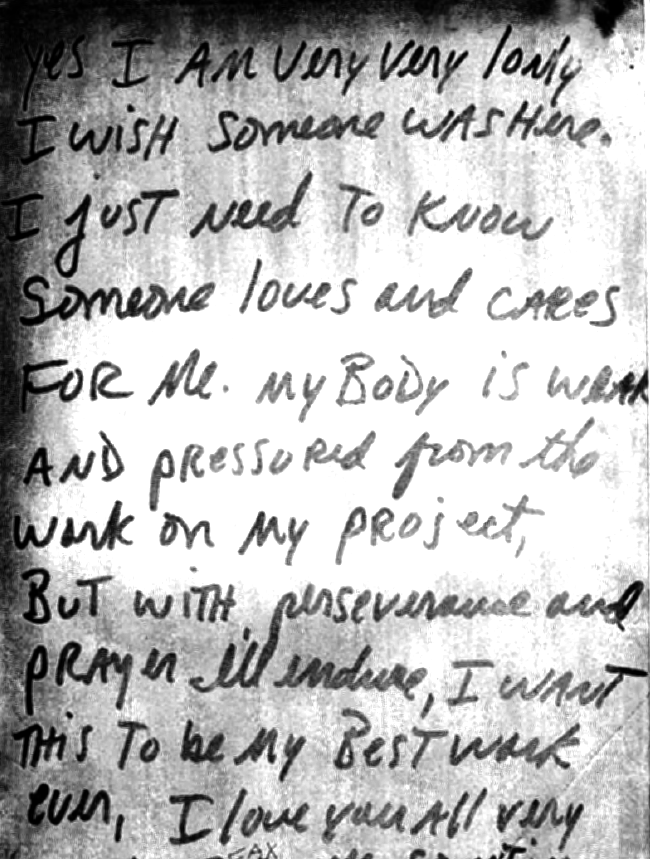 yes I AM very very lonly
I wish someone was Here.
I just need To Know
Someone loves and cares
FOR Me. My Body is weak
AND pressured from the
work on My project,
But with perseverance and
prayer I'll endure, I want
This To be My Best work
ever, I love you All very
FAX